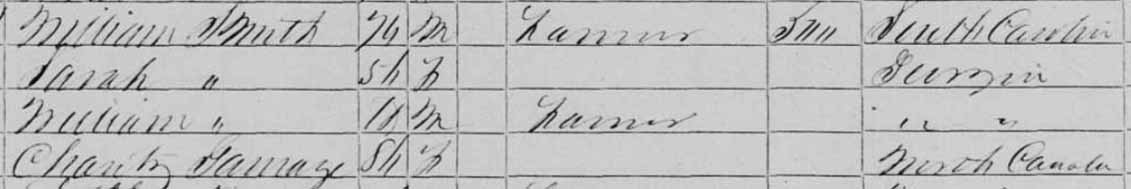 William Smith 74 M Farmer South Carolin
Sarah " 54 F Georgia
William " M Farmer " "
Charity Gamage 54 F North Carolin